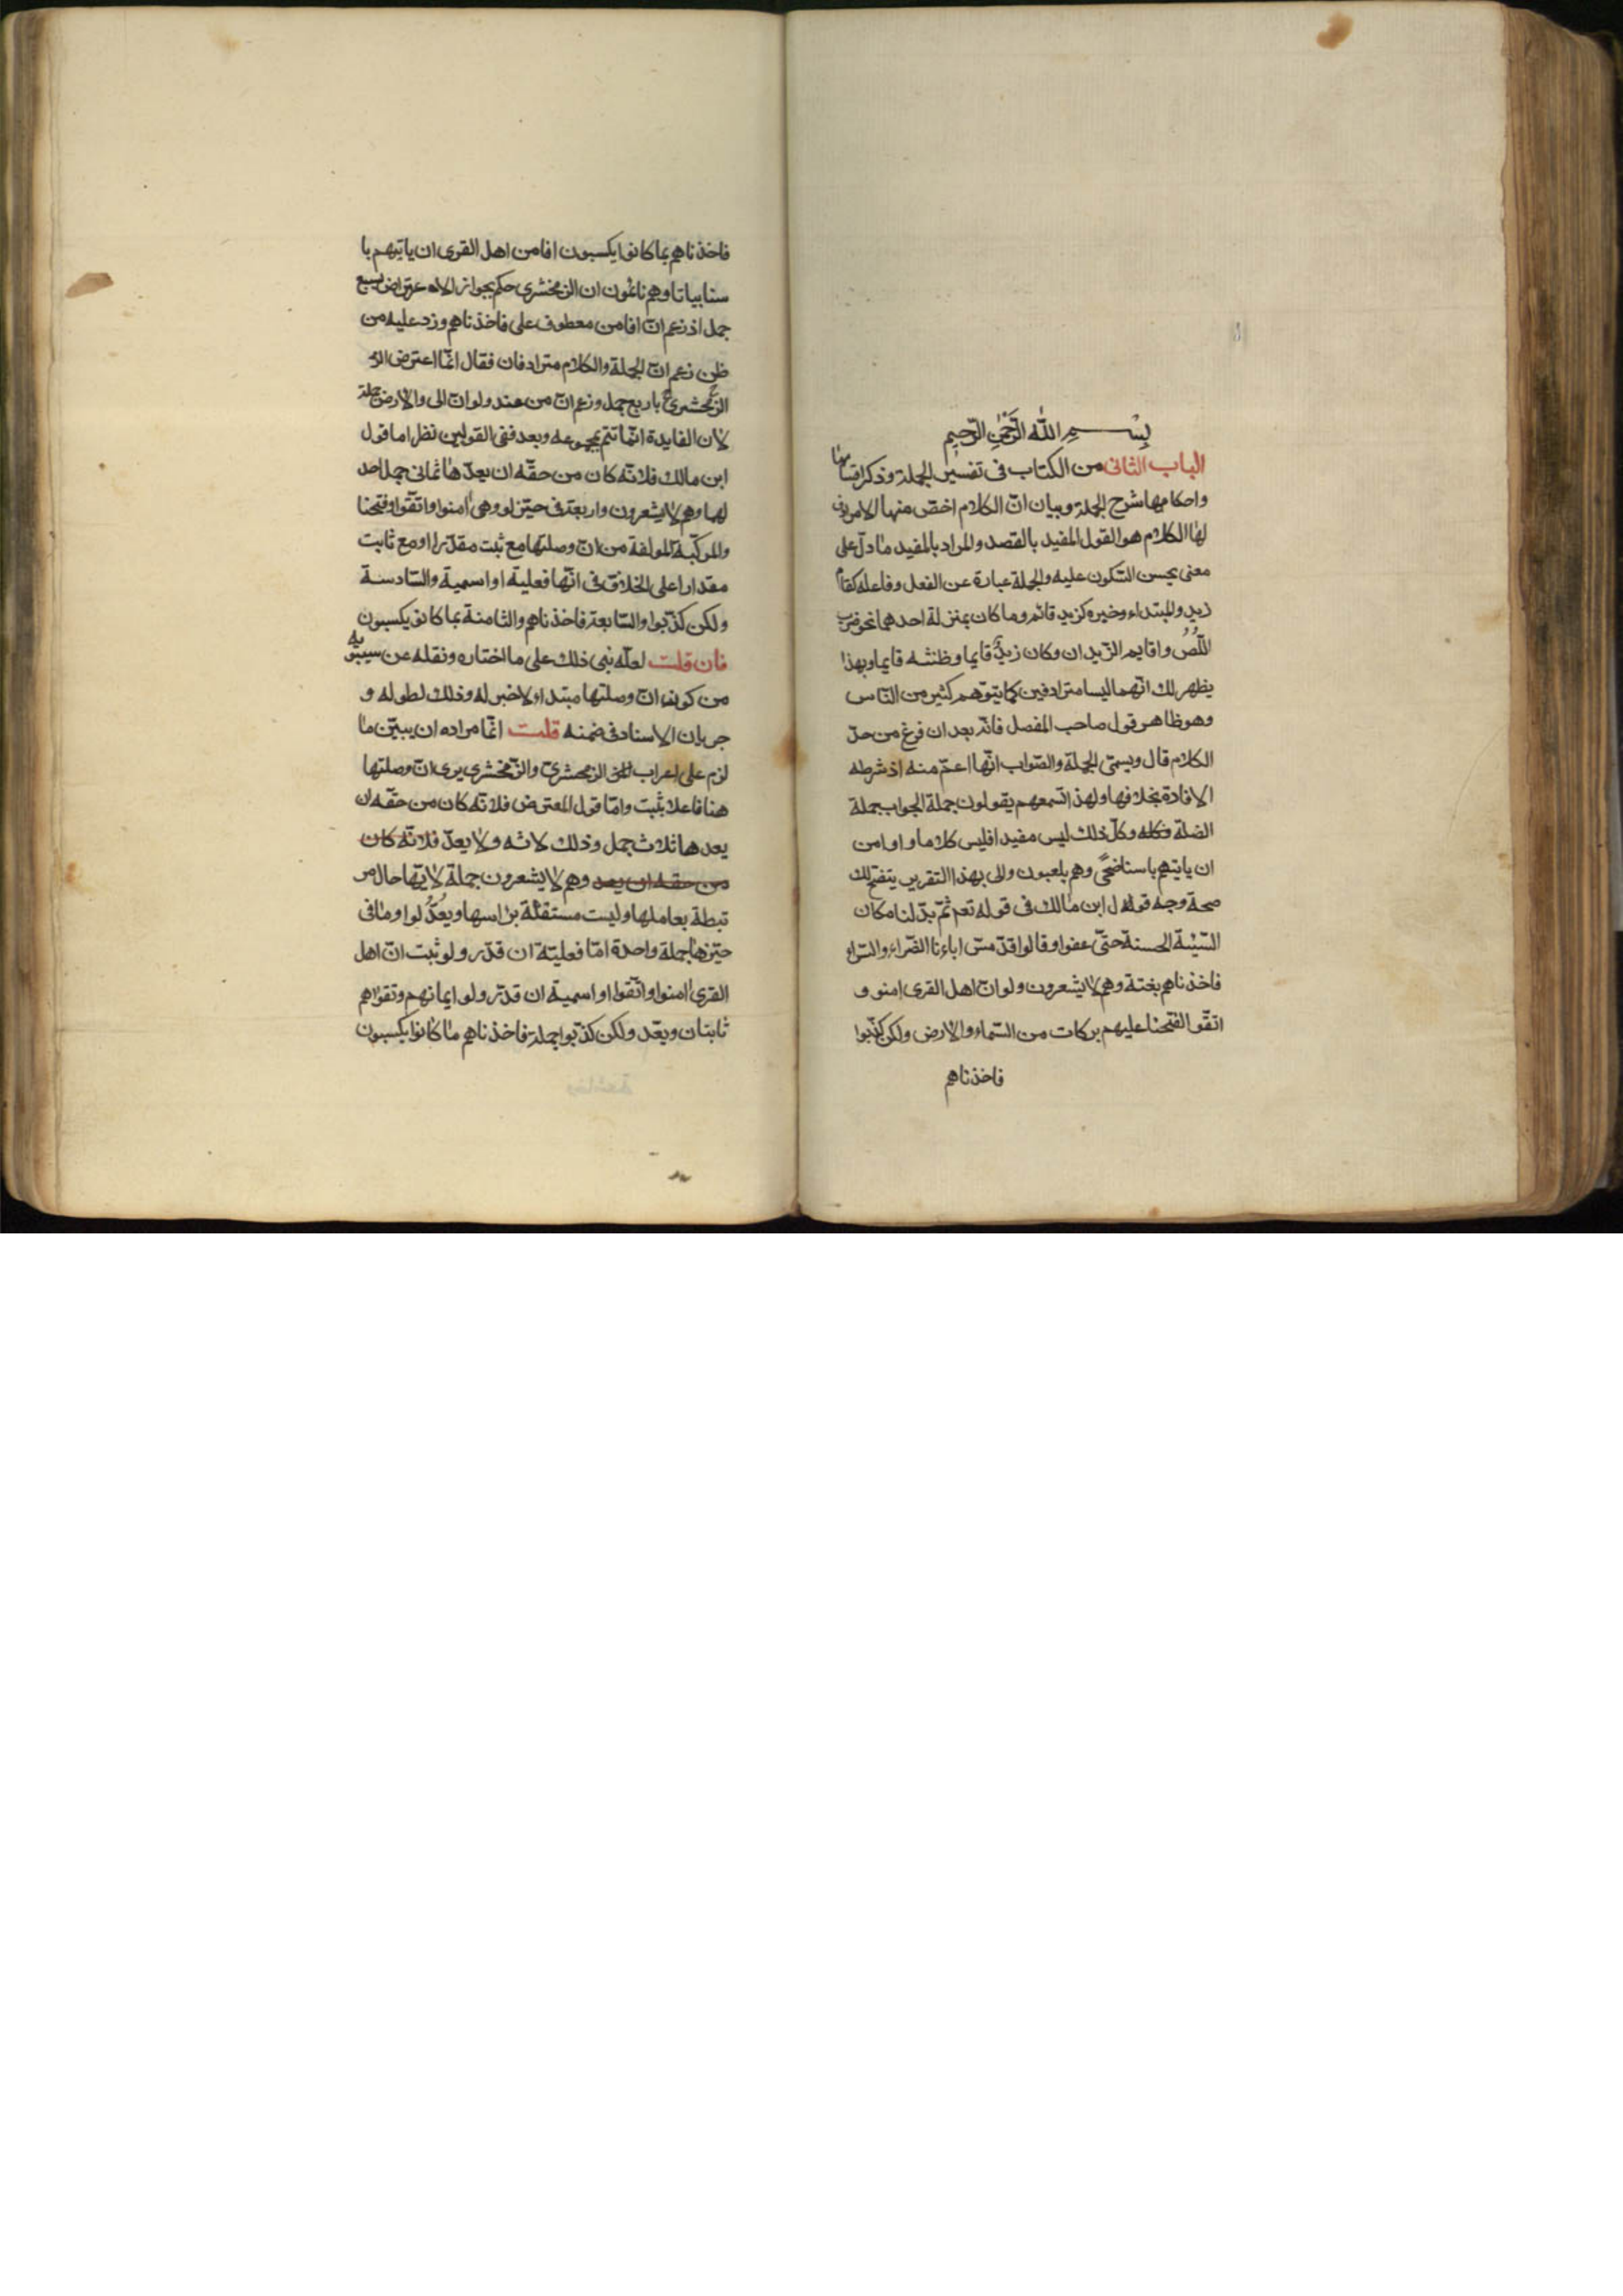 بِسْــــمِ اللّٰهِ الرَّحْمٰنِ الرَّحِيمِ
الباب الثانى من الكتاب فى تفسير الجملة وذكر اقسامها
واحكامها شرح الجملة وبيان انّ الكلام اخصّ منها لا مرادف
لها الكلام هو القول المفيد بالقصد والمراد بالمفيد ما دلّ على
معنى يحسن السّكون عليه والجملة عبارة عن الفعل وفاعله كقام
زيد والمبتداء وخبره كزيد قائم وما كان بمنزلة احدهما نحو ضرب
اللّصُّ واقايم الزّيدان وكان زيدٌ قايما وظننته قايما وبهذا
يظهر لك انّهما ليسا مترادفين كما يتوّهم كثير من النّاس
وهو ظاهر قول صاحب المفصل فانّه بعد ان فرغ من حدّ
الكلام قال ويسمّى الجملة والصّواب انّها اعمّ منه اذ شرطه
الافادة بخلافها ولهذا تسمعهم يقولون جملة الجواب جملة
الصّلة وكلّ ذلك ليس مفيدا فليس كلاما واوامن
ان ياتيهم باسنا ضحًى وهم يلعبون والى بهذا التقرير يتضح لك
صحة وجه قول ابن مالك فى قوله تعم ثمّ بدّلنا مكان
السّيّئة الحسنة حتّى عفوا وقالوا قد مسّ اباءنا الضّراء والسّراء
فاخذناهم بغتة وهم لا يشعرون ولو انّ اهل القرى امنو و
اتقّوا لفتحنا عليهم بركات من السّماء والارض ولكن كذّبوا
فاخذناهم
فاخذناهم بما كانوا يكسبون افامن اهل القرى ان ياتيهم با
سنا بياتا وهم نائمون ان الزمخشرى حكم بجواز الاعتراض بسبع
جمل اذ زعم انّ افامن معطوف على فاخذناهم وردّ عليه من
ظن زعم انّ الجملة والكلام مترادفان فقال انّما اعترض الز
الزمخشرىّ باربع جمل وزعم انّ من عند ولو انّ الى والارض جملة
لان الفايدة انّما تتم بمجموعه وبعد ففى القولين نظر اما قول
ابن مالك فلانّه كان من حقّه ان يعدّها ثمانى جمل احد
لها وهم لا يشعرون واربعة فى حيّز لو وهى امنوا واتّقوا وفتحنا
والمركّبة المولفة من انّ وصلتها مع ثبت مقدّرا او مع ثابت
مقدارا على الخلاف فى انّها فعلية او اسمية والسّادسة
ولكن كذّبوا والسّابعة فاخذناهم والثامنة بما كانوا يكسبون
فان قلت لعلّه بنى ذلك على ما اختاره ونقله عن سيبويه
من كون انّ وصلتها مبتدا ولا خبر له وذلك لطوله و
جريان الاسناد فى ضمنه قلت انّما مراده ان يبيّن ما
لزم على اعراب الزمحشرىّ والزّمخشرى يرى انّ وصلتها
هنا فاعلا بثبت وامّا قول المعترض فلانّه كان من حقّه ان
يعدها ثلاث جمل وذلك لانّه ولا يعدّ فلانّه كان
من حقه ان يعد وهم لا يشعرون جملة لانّها حال مر
تبطة بعاملها وليست مستقلّة براسها ويعُدُّ لو وما فى
حيّزها جملة واحدة امّا فعليّة ان قدّر ولو ثبت انّ اهل
القرى امنوا واتّقوا او اسمية ان قدّر ولو ايمانهم وتقواهم
ثابتان ويعّد ولكن كذّبوا جملة فاخذناهم ما كانوا يكسبون